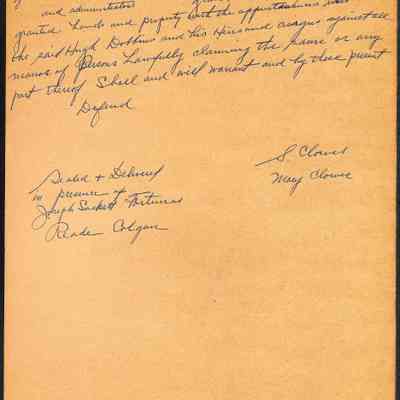 and administrators
granted Lands and property with the appurtenances unto
the said Hugh Dobbins and his Heirs and assigns against all
manor of Persons Lawfully claiming the same or any
part thereof Shall and will warant and by these present
Defend
S. Clowes
Mary Clowes
Sealed & Delivered
in presence of
Joseph Sackett
Reade Colgan